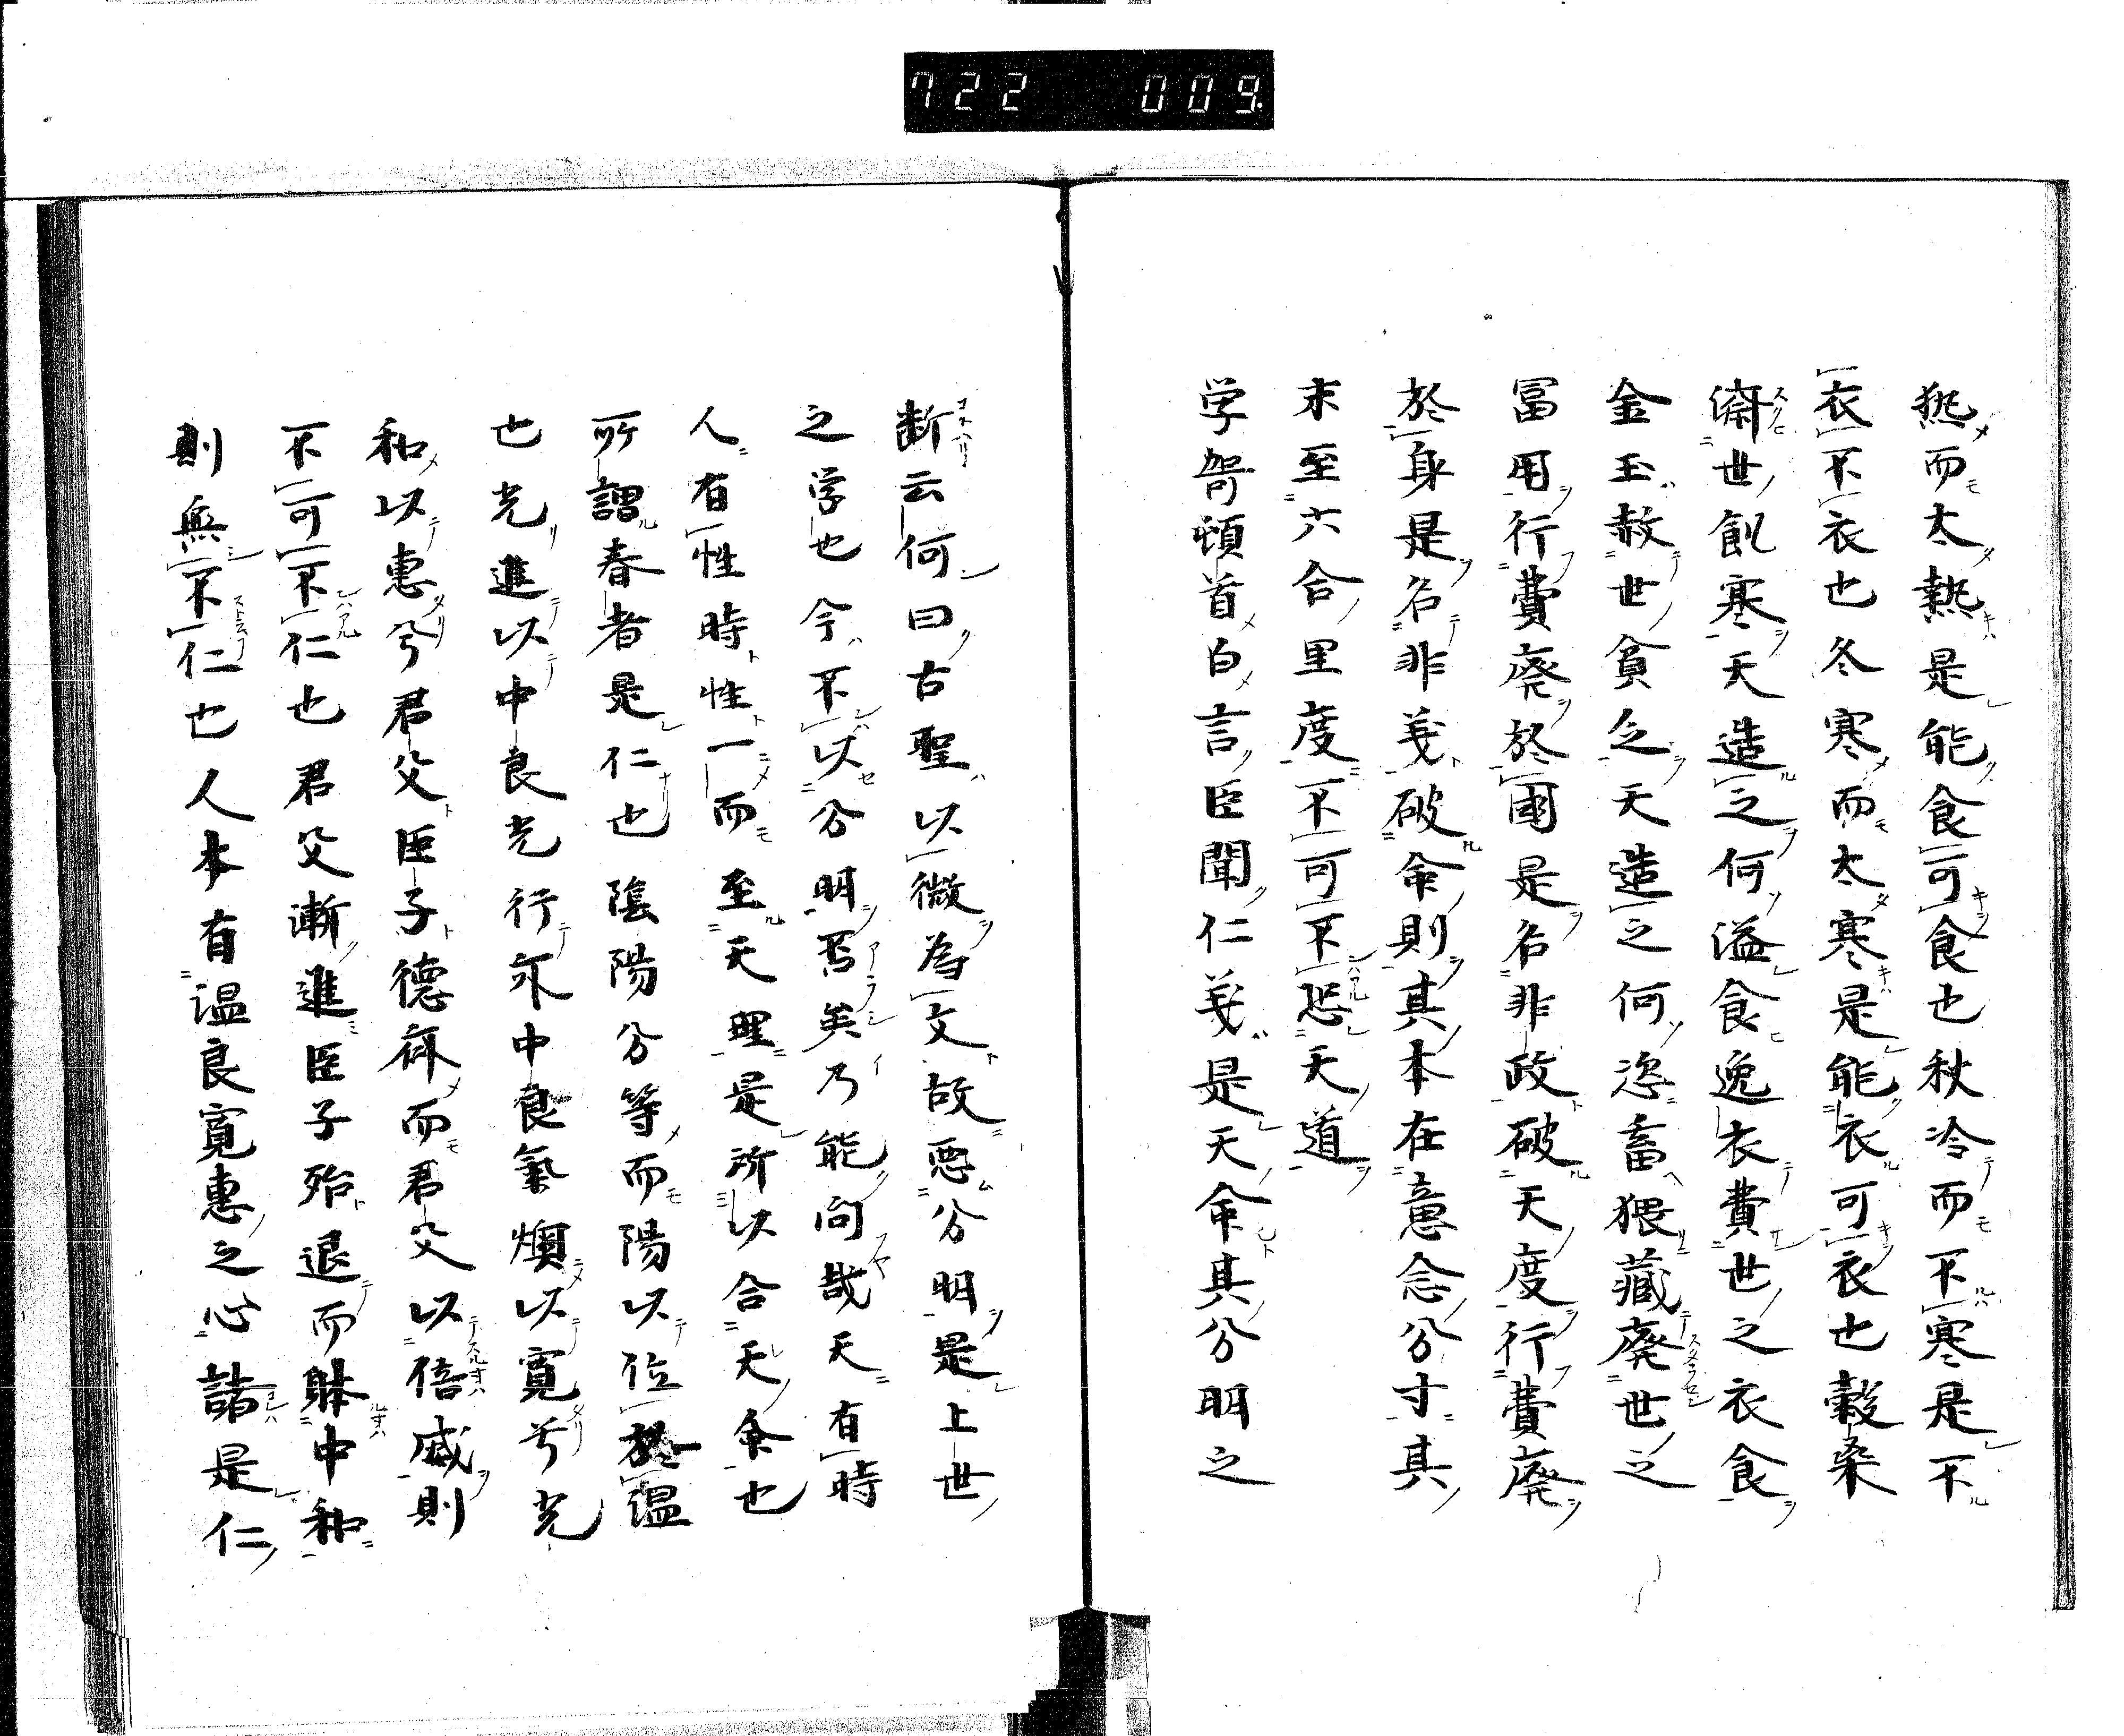 722 009
熟而太熱是能食可食也秋冷而不寒是不
衣不衣也冬寒而太寒是能衣可衣也穀桑
濟世飢寒天造之何溢食逸衣費世之衣食
金玉救世貧乏天造之何恣畜猥藏廃世之
冨用行費廃於國是名非政破天度行費廃
於身是名非義破命則其本在意念分寸其
末至六合里度不可不恐天道
学哿頓首白言臣聞仁義是天命其分明之
断云何曰古聖以微為文故悪分明是上世
之学也今不以分明焉矣乃能向哉天有時
人有性時性一而至天理是所以合天命也
所謂春者是仁也陰陽分等而陽以位於温
也光進以中良光行尓中良氣燠以寛兮光
和以惠兮君父臣子德齊而君父以倍威則
不可不仁也君父漸進臣子殆退而躰中和
則無不仁也人本有温良寛惠之心諸是仁